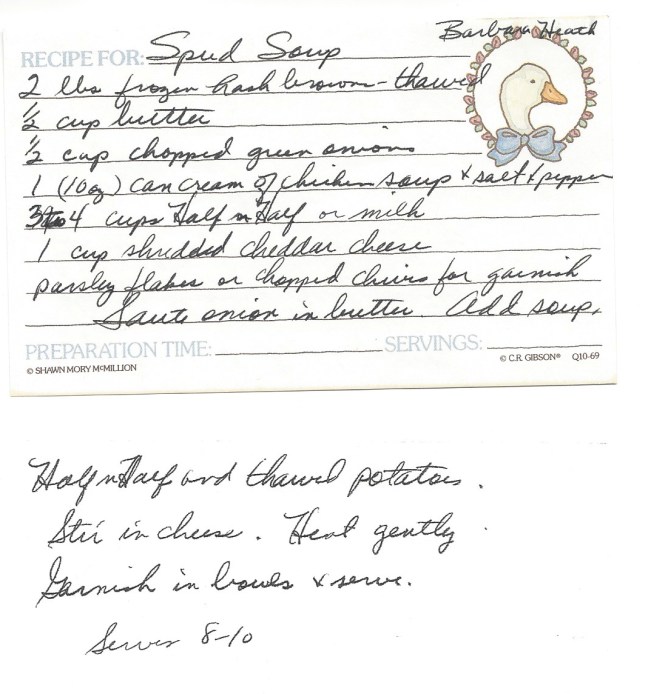 Barbara Heath
RECIPE FOR: Spud Soup
2 lbs frozen hash browns - thawed
½ cup butter
½ cup chopped green onions
1 (10 oz) can cream of chicken soup & salt & pepper
3 to 4 cups Half n Half or milk
1 cup shredded cheddar cheese
parsley flakes or chopped chives for garnish
Saute onion in butter. Add soup,
PREPARATION TIME: SERVINGS:
© SHAWN MORY McMILLION © C.R. GIBSON® Q10-69
Half n Half and thawed potatoes.
Stir in cheese. Heat gently
Garnish in bowls & serve.
Serves 8-10